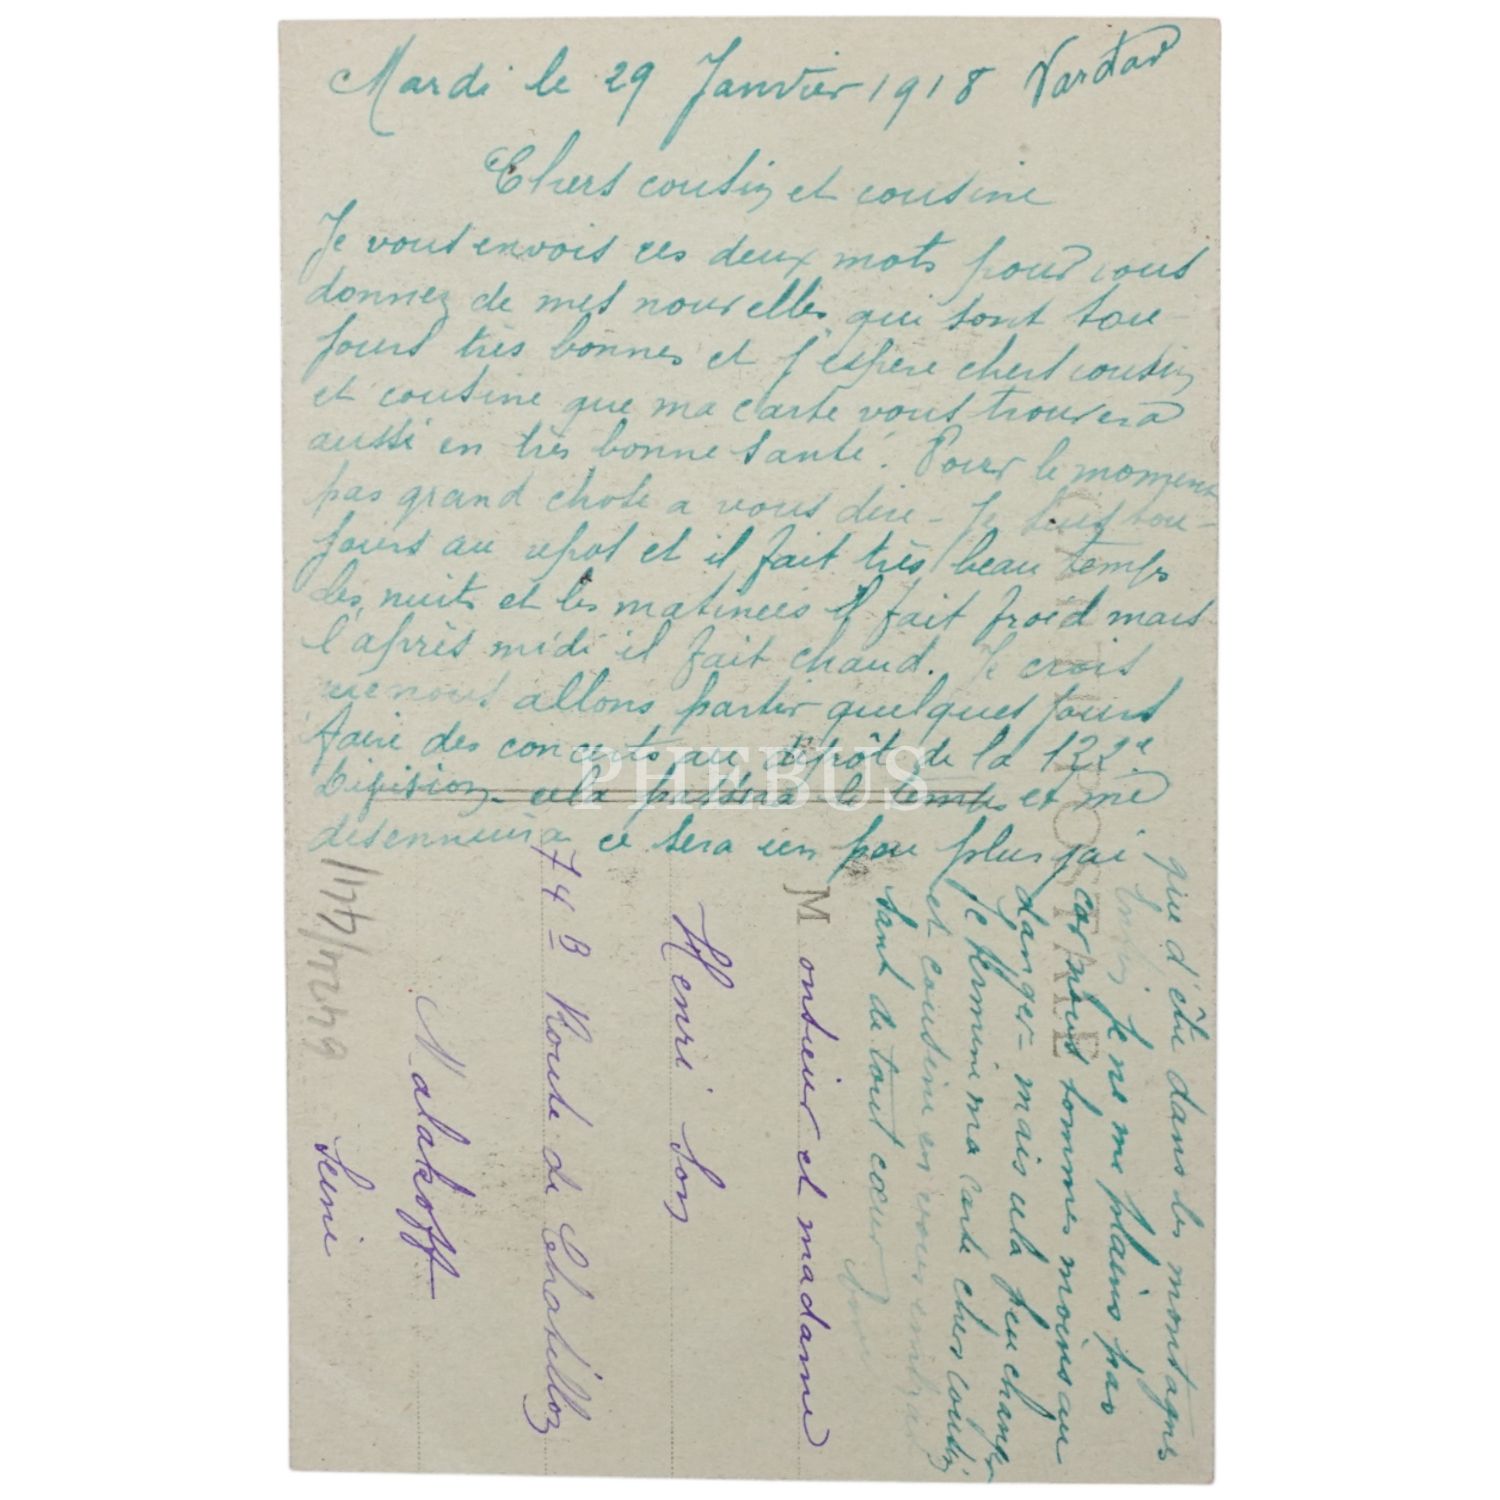 Mardi le 29 Janvier 1918 Vardar
Chers cousin et cousine
Je vous envois ces deux mots pour vous
donnez de mes nouvelles qui sont tou-
jours très bonnes et j'espère chers cousin
et cousine que ma carte vous trouvera
aussi en très bonne santé. Pour le moment
pas grand chose a vous dire - Je suis tou-
jours au repos et il fait très beau temps
les nuits et les matinées il fait froid mais
l'après midi il fait chaud. Je crois
que nous allons partir quelques jours
faire des concerts au dépôt de la 122e
Division - cela passera le temps et me
desennuira ce sera un peu plus gai
que d'être dans les montagnes
Enfin je ne me plains pas
car nous sommes moins au
danger - mais cela peu changer
je termine ma carte chers cousin
et cousine en vous embras
sant de tout cœur
CARTE POSTALE
Monsieur et madame
Henri Son
74 B Route de Chatillon
Malakoff
Seine
PHEBUS